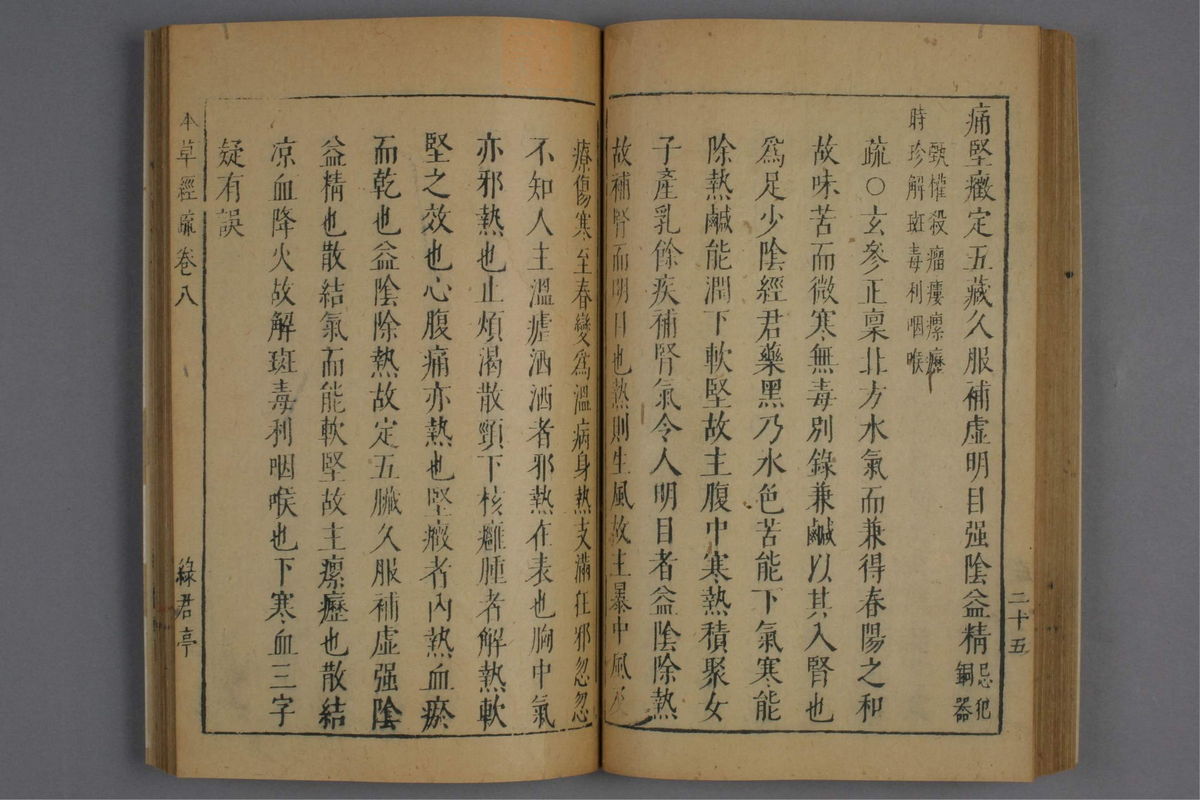 痛堅癥定五藏久服補虛明目强陰益精忌犯銅器
甄權殺瘤瘻瘰癧
時珍解斑毒利咽喉
疏○玄參正稟北方水氣而兼得春陽之和
故味苦而微寒無毒別錄兼鹹以其入腎也
爲足少陰經君藥黑乃水色苦能下氣寒能
除熱鹹能潤下軟堅故主腹中寒熱積聚女
子產乳餘疾補腎氣令人明目者益陰除熱
故補腎而明目也熱則生風故主暴中風及
二十五
療傷寒至春變爲溫病身熱支滿狂邪忽忽
不知人主溫瘧洒洒者邪熱在表也胸中氣
亦邪熱也止煩渴散頸下核癰腫者解熱軟
堅之效也心腹痛亦熱也堅癥者內熱血瘀
而乾也益陰除熱故定五臟久服補虛强陰
益精也散結氣而能軟堅故主瘰癧也散結
凉血降火故解斑毒利咽喉也下寒血三字
疑有誤
本草經疏卷八 綠君亭